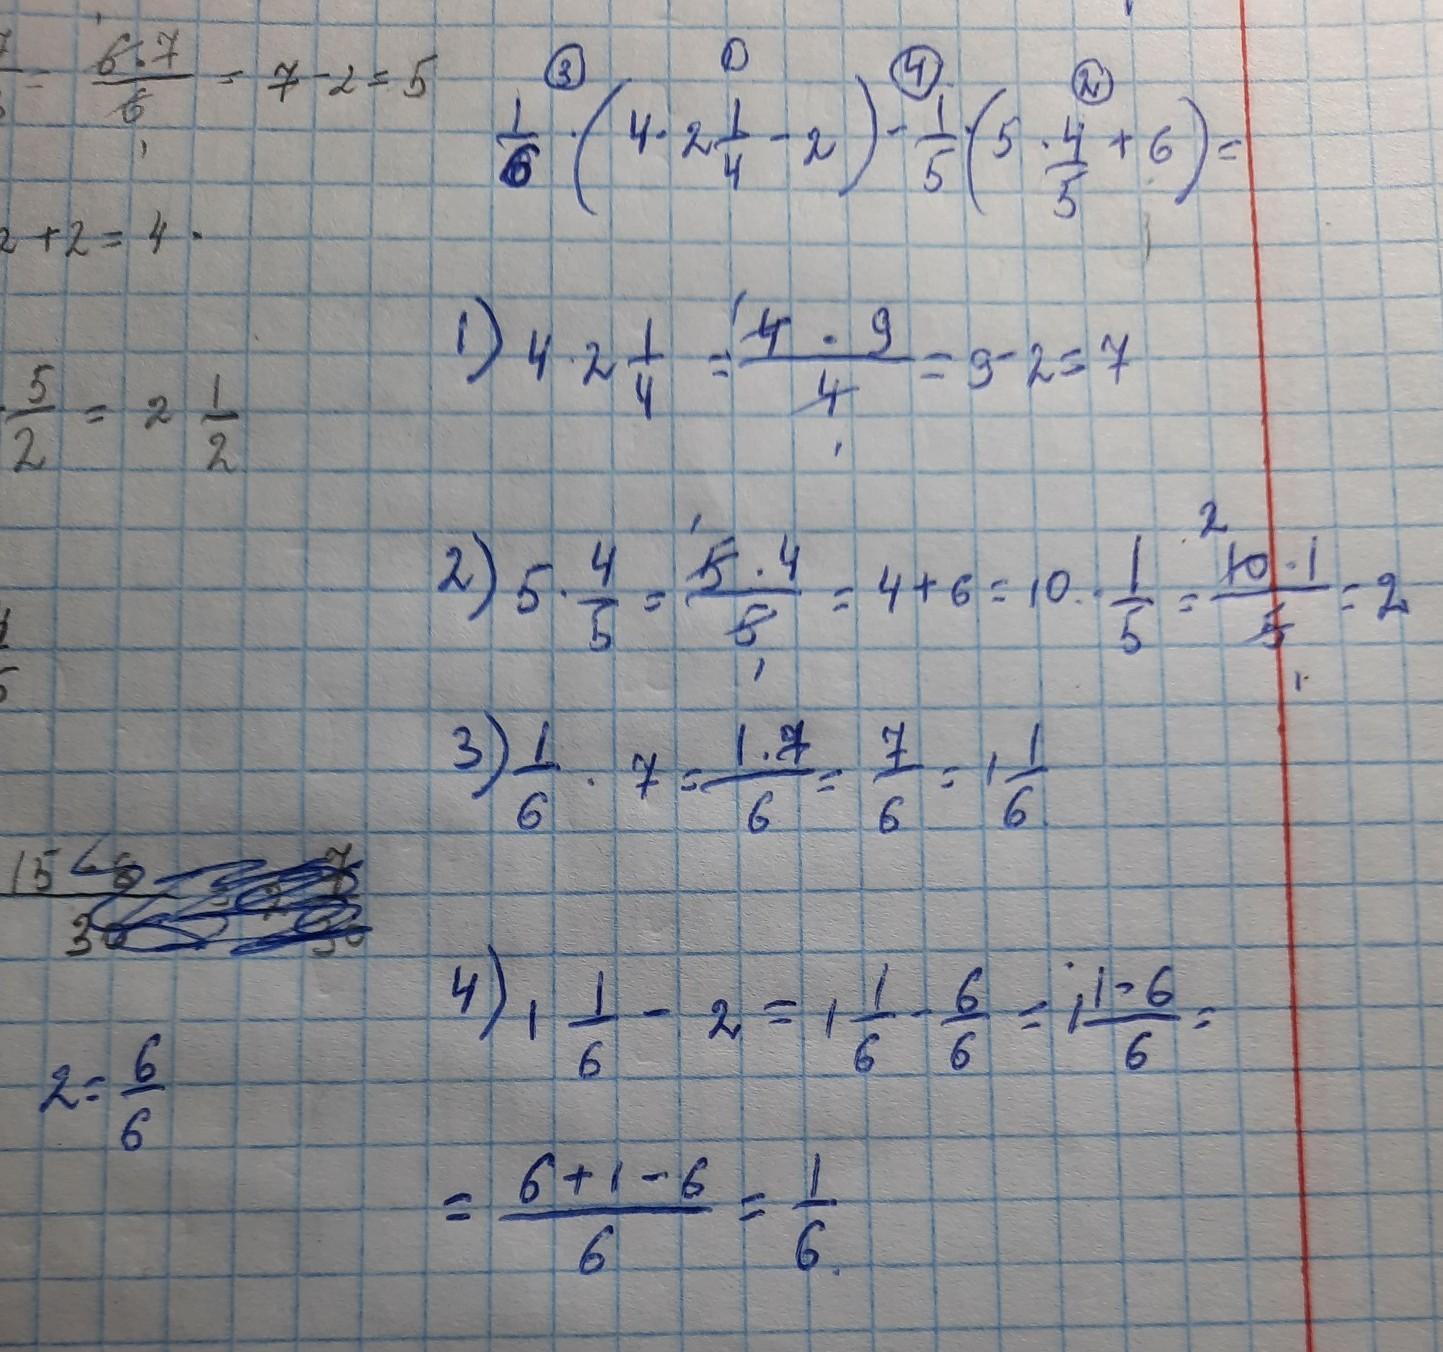 6·7/6 = 7-2=5
+2=4.
5/2 = 2 1/2
2= 6/6
③ 1 ④ ②
1/6 · (4·2 1/4 - 2) - 1/5 · (5 · 4/5 + 6) =
1) 4·2 1/4 = 4·9/4 = 9-2=7
2) 5· 4/5 = 5·4/5 = 4+6=10· 1/5 = 10·1/5 = 2
3) 1/6 · 7 = 1·7/6 = 7/6 = 1 1/6
4) 1 1/6 - 2 = 1 1/6 - 6/6 = 1 1-6/6 =
= 6+1-6/6 = 1/6.